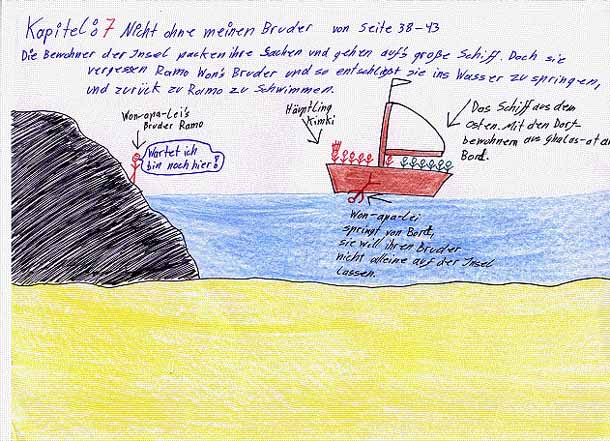 Kapitel: 7 Nicht ohne meinen Bruder von Seite 38-43
Die Bewohner der Insel packen ihre Sachen und gehen auf's große Schiff. Doch sie
vergessen Ramo Won's Bruder und so entschließt sie ins Wasser zu springen,
und zurück zu Ramo zu Schwimmen.
Won-apa-Lei's
Bruder Ramo
Wartet ich
bin noch hier!
Häuptling
Kimki
Das Schiff aus dem
Osten. Mit den Dorf-
bewohnern aus ghalas-at an
Bord.
Won-apa-Lei
springt von Bord,
sie will ihren Bruder
nicht alleine auf der Insel
lassen.